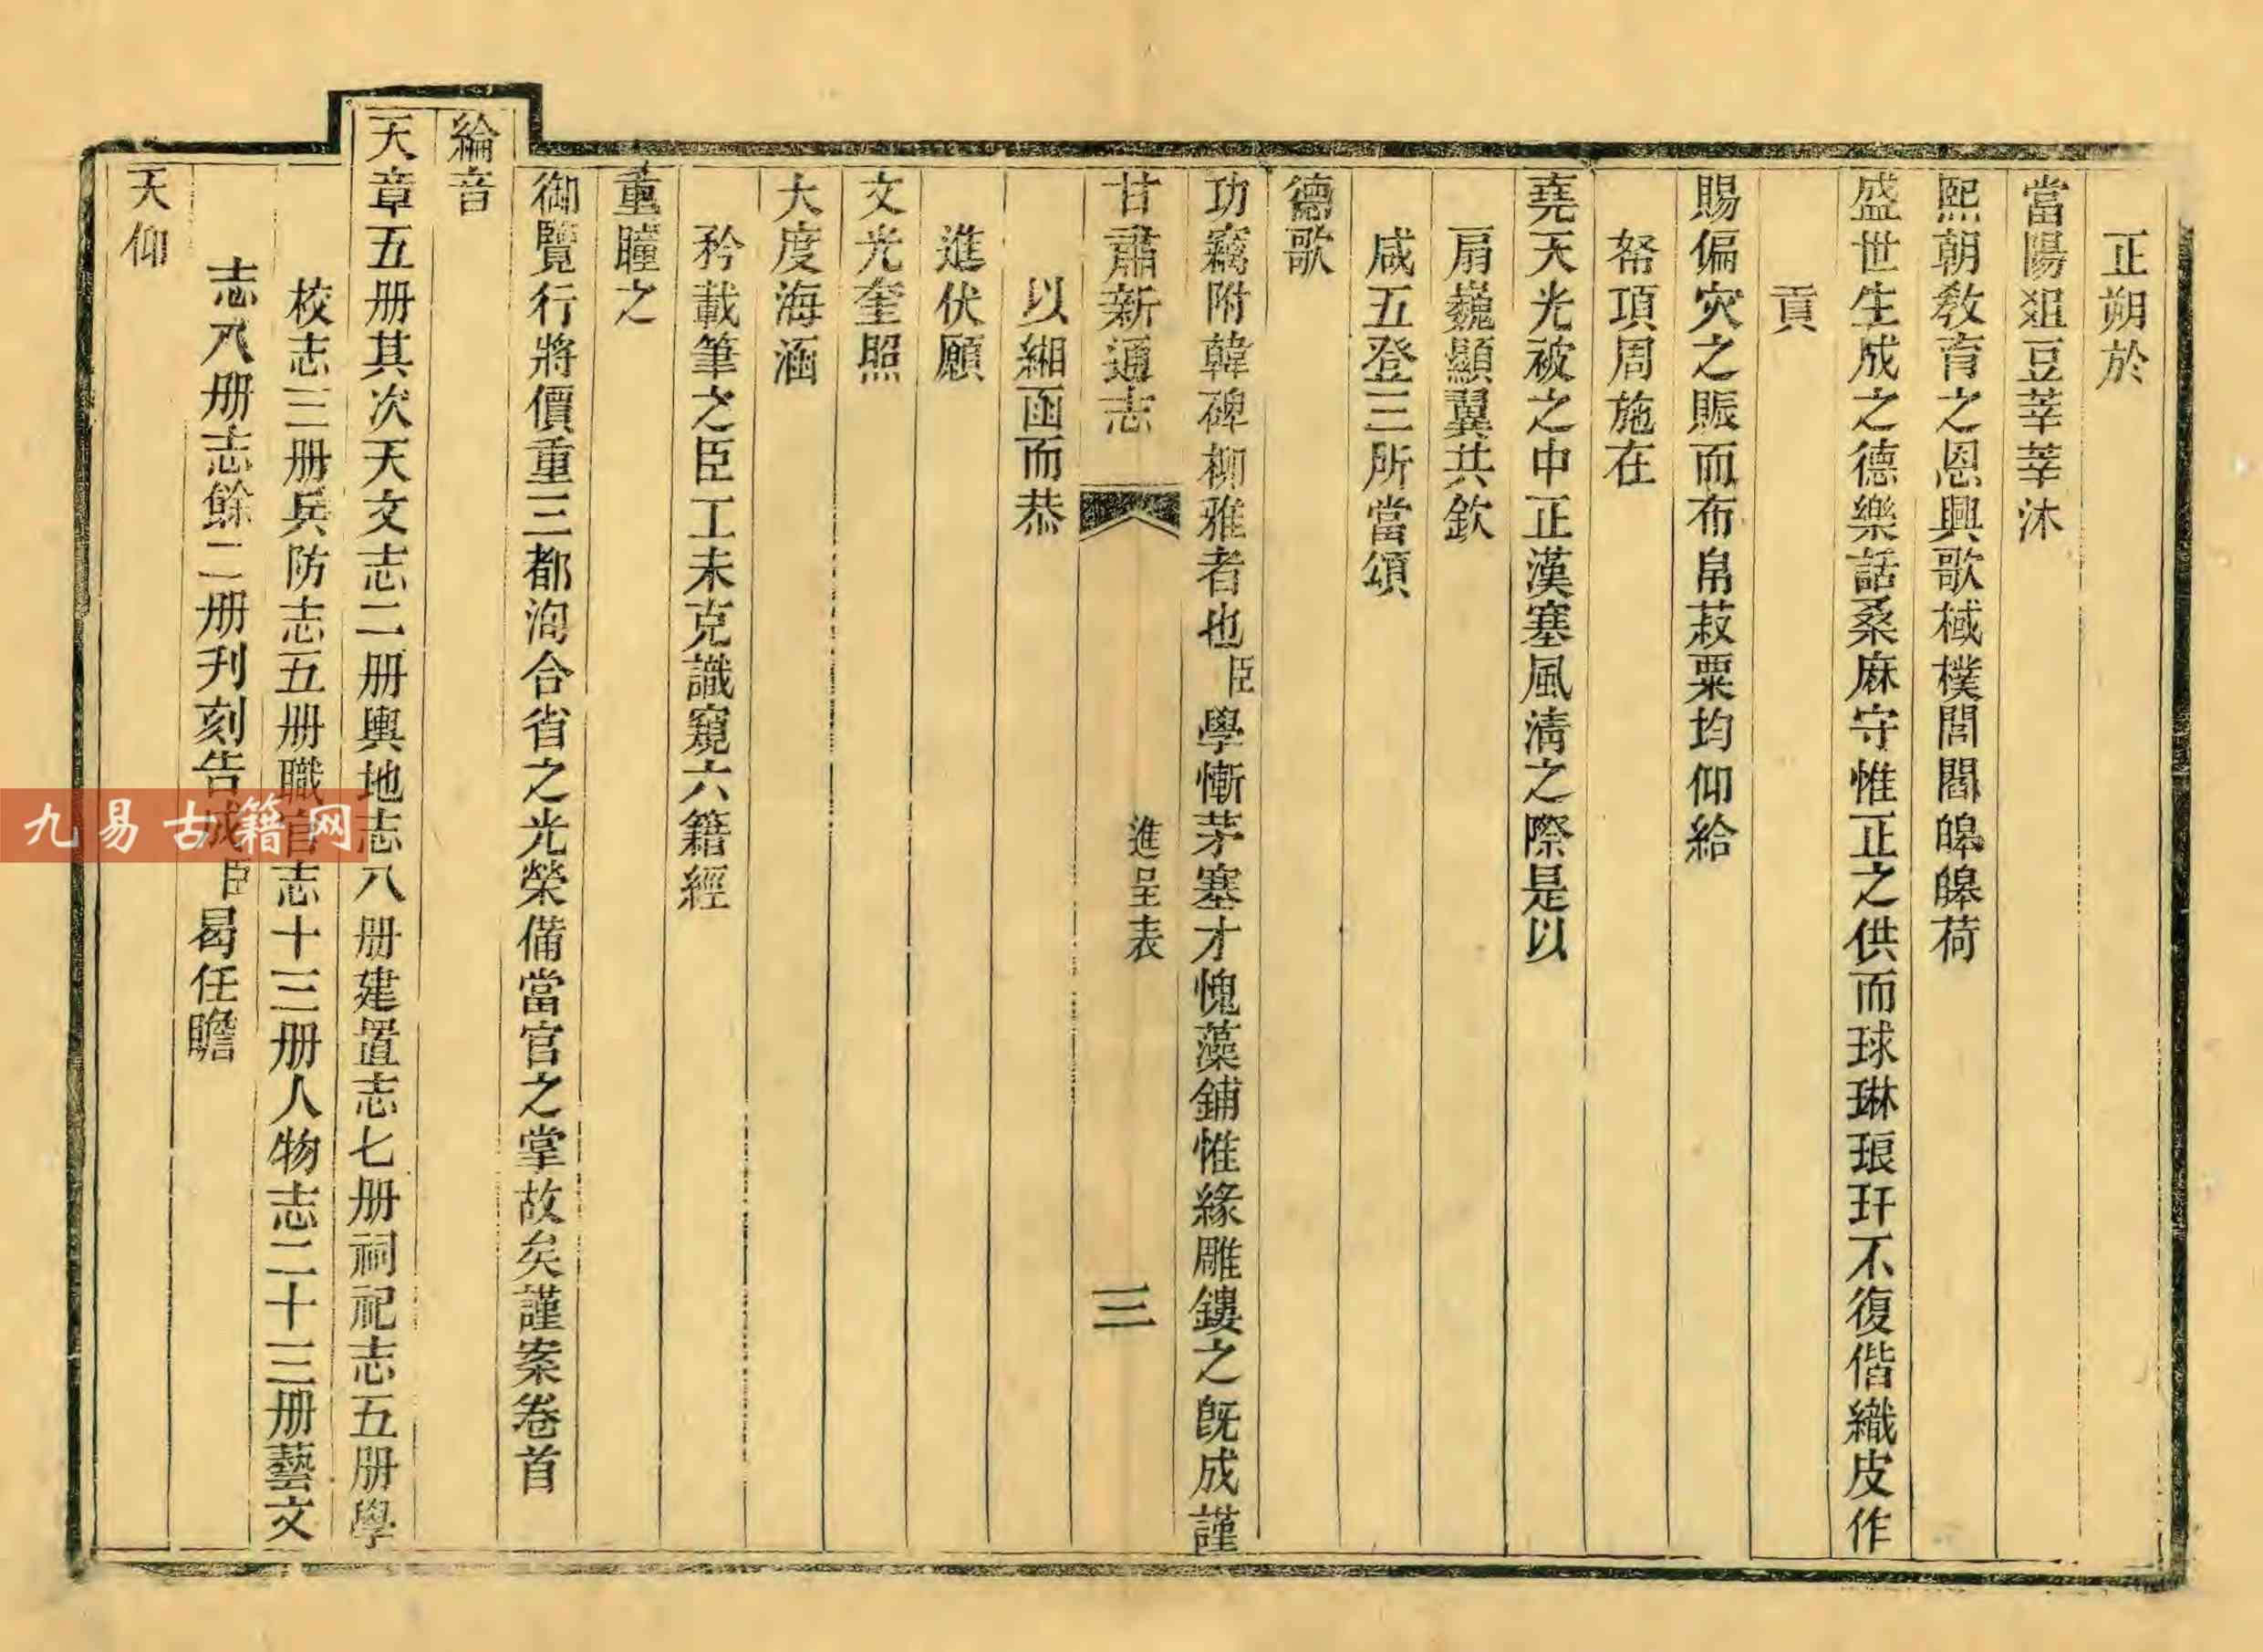 正朔於
當陽俎豆莘莘沐
熙朝敎育之恩興歌棫樸誾誾皥皥荷
盛世生成之德樂話桑麻守惟正之供而球琳琅玕不復偕織皮作
貢
賜偏災之賑而布帛菽粟均仰給
帑項周施在
堯天光被之中正漢塞風淸之際是以
扃巍顯翼共欽
咸五登三所當頌
德歌
功竊附韓碑柳雅者也臣學慚茅塞才愧藻鋪惟緣雕鏤之旣成謹
甘肅新通志 進呈表 三
以緗函而恭
進伏願
文光奎照
大度海涵
矜載筆之臣工未克識窺六籍經
重瞳之
御覽行將價重三都洵合省之光榮備當官之掌故矣謹案卷首
綸音
天章五册其次天文志二册輿地志八册建置志七册祠祀志五册學
校志三册兵防志五册職官志十三册人物志二十三册藝文
志八册志餘二册刋刻告成臣曷任瞻
天仰
九易古籍网